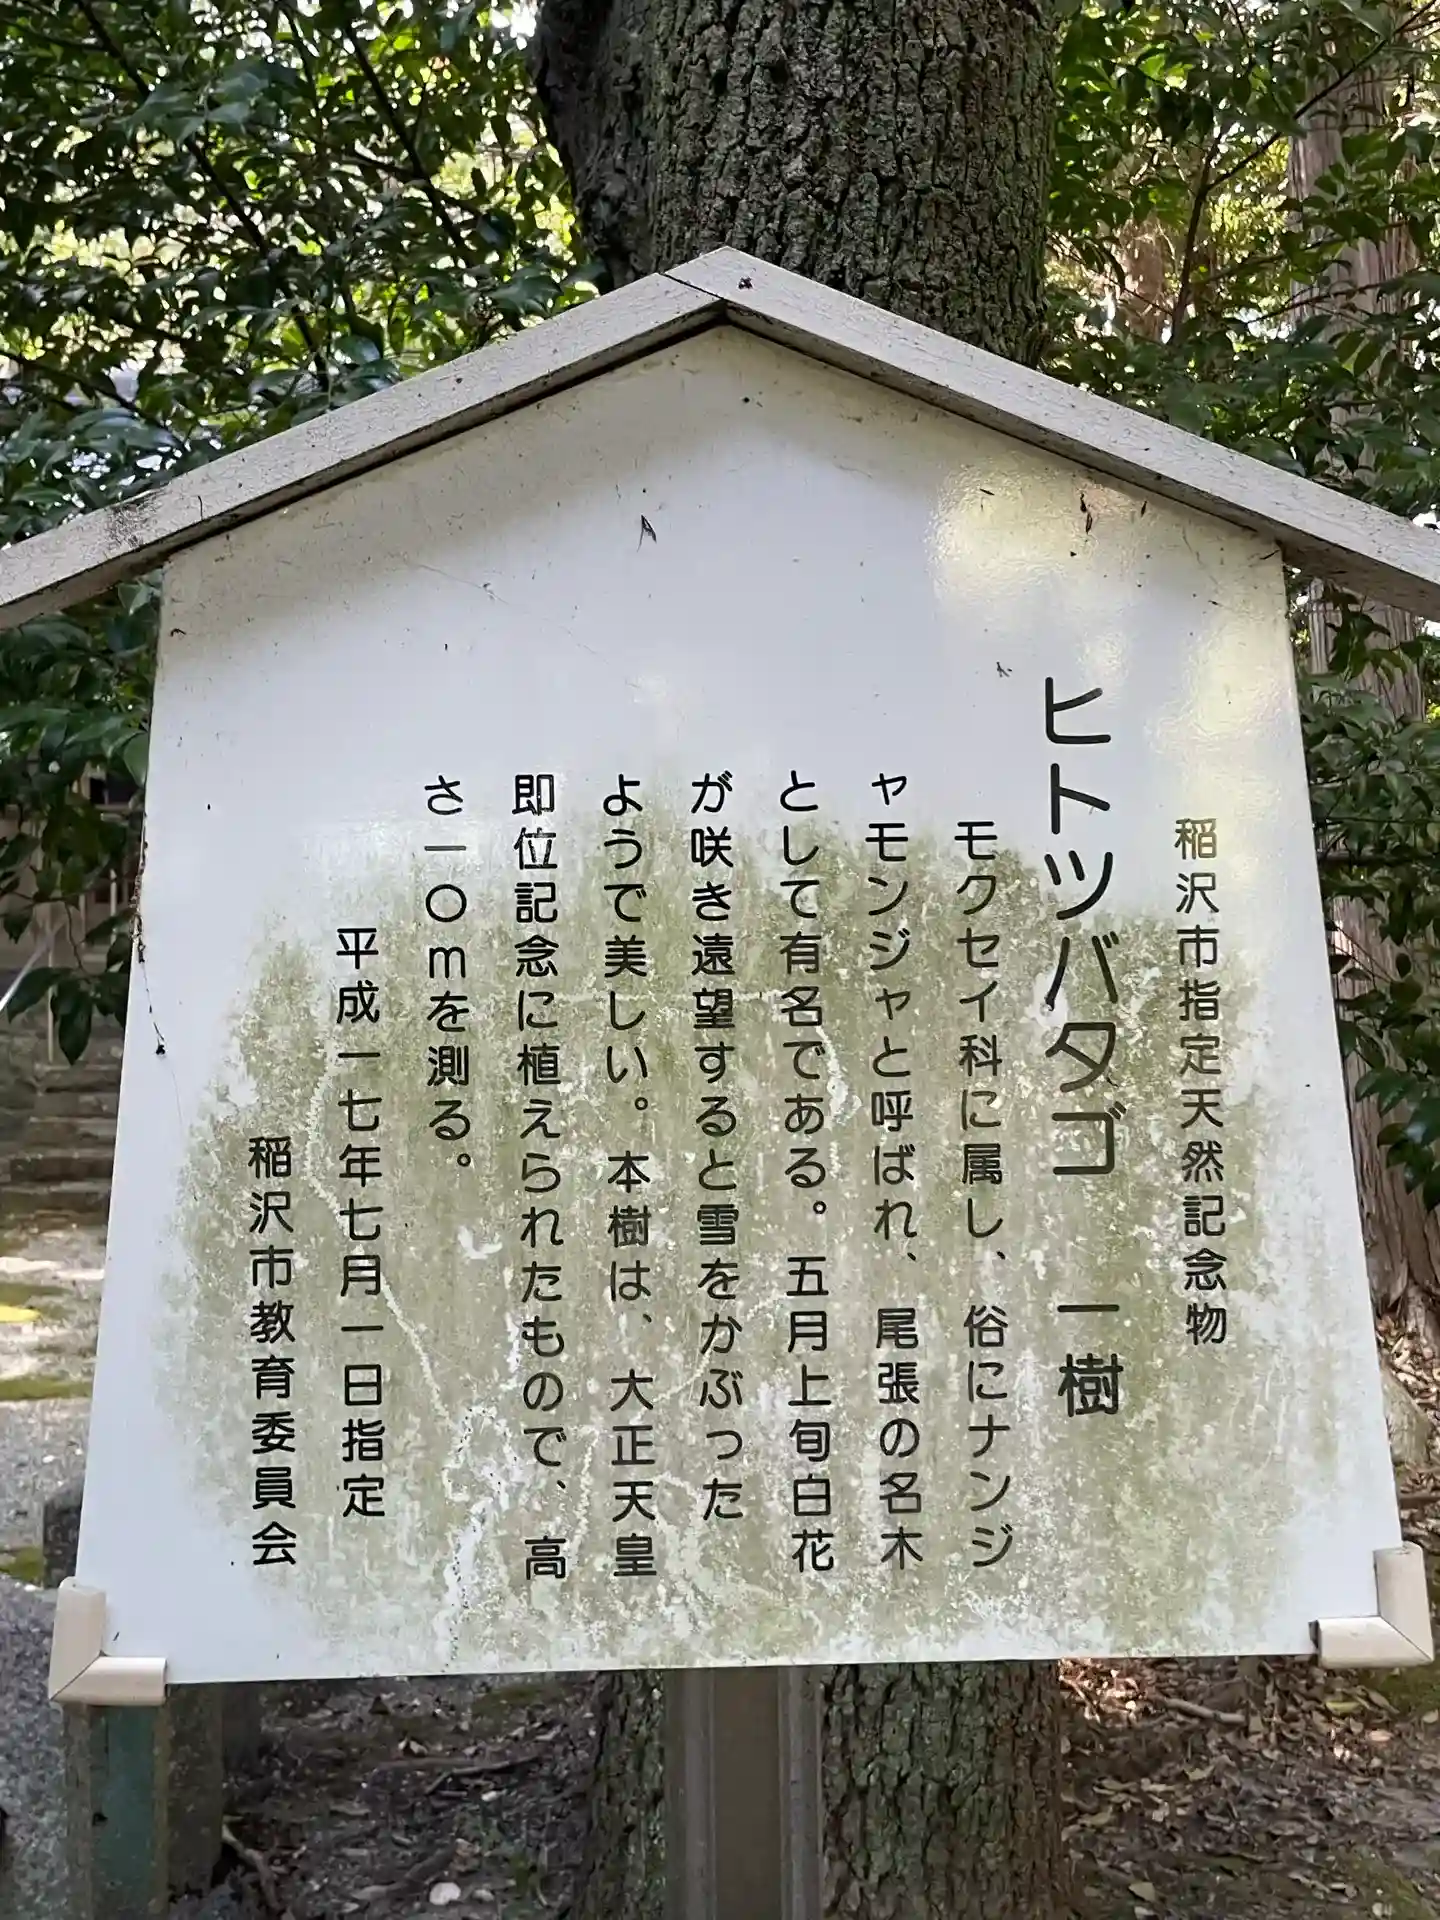 稲沢市指定天然記念物
ヒトツバタゴ 一樹
モクセイ科に属し、俗にナンジ
ャモンジャと呼ばれ、尾張の名木
として有名である。五月上旬白花
が咲き遠望すると雪をかぶった
ようで美しい。本樹は、大正天皇
即位記念に植えられたもので、高
さ一〇mを測る。
平成一七年七月一日指定
稲沢市教育委員会